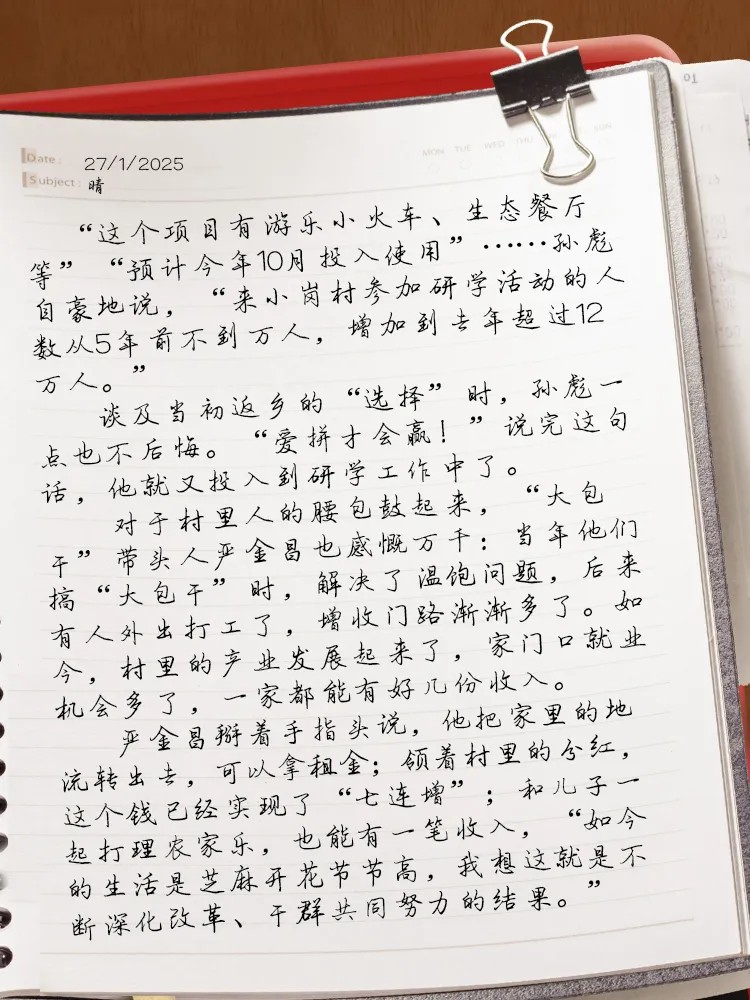 Date: 27/1/2025
MON TUE WED THU FRI SUN
Subject: 晴
“这个项目有游乐小火车、生态餐厅
等”“预计今年10月投入使用”……孙彪
自豪地说，“来小岗村参加研学活动的人
数从5年前不到万人，增加到去年超过12
万人。”
谈及当初返乡的“选择”时，孙彪一
点也不后悔。“爱拼才会赢！”说完这句
话，他就又投入到研学工作中了。
对于村里人的腰包鼓起来，“大包
干”带头人严金昌也感慨万千：当年他们
搞“大包干”时，解决了温饱问题，后来
有人外出打工了，增收门路渐渐多了。如
今，村里的产业发展起来了，家门口就业
机会多了，一家都能有好几份收入。
严金昌掰着手指头说，他把家里的地
流转出去，可以拿租金；领着村里的分红，
这个钱已经实现了“七连增”；和儿子一
起打理农家乐，也能有一笔收入，“如今
的生活是芝麻开花节节高，我想这就是不
断深化改革、干群共同努力的结果。”